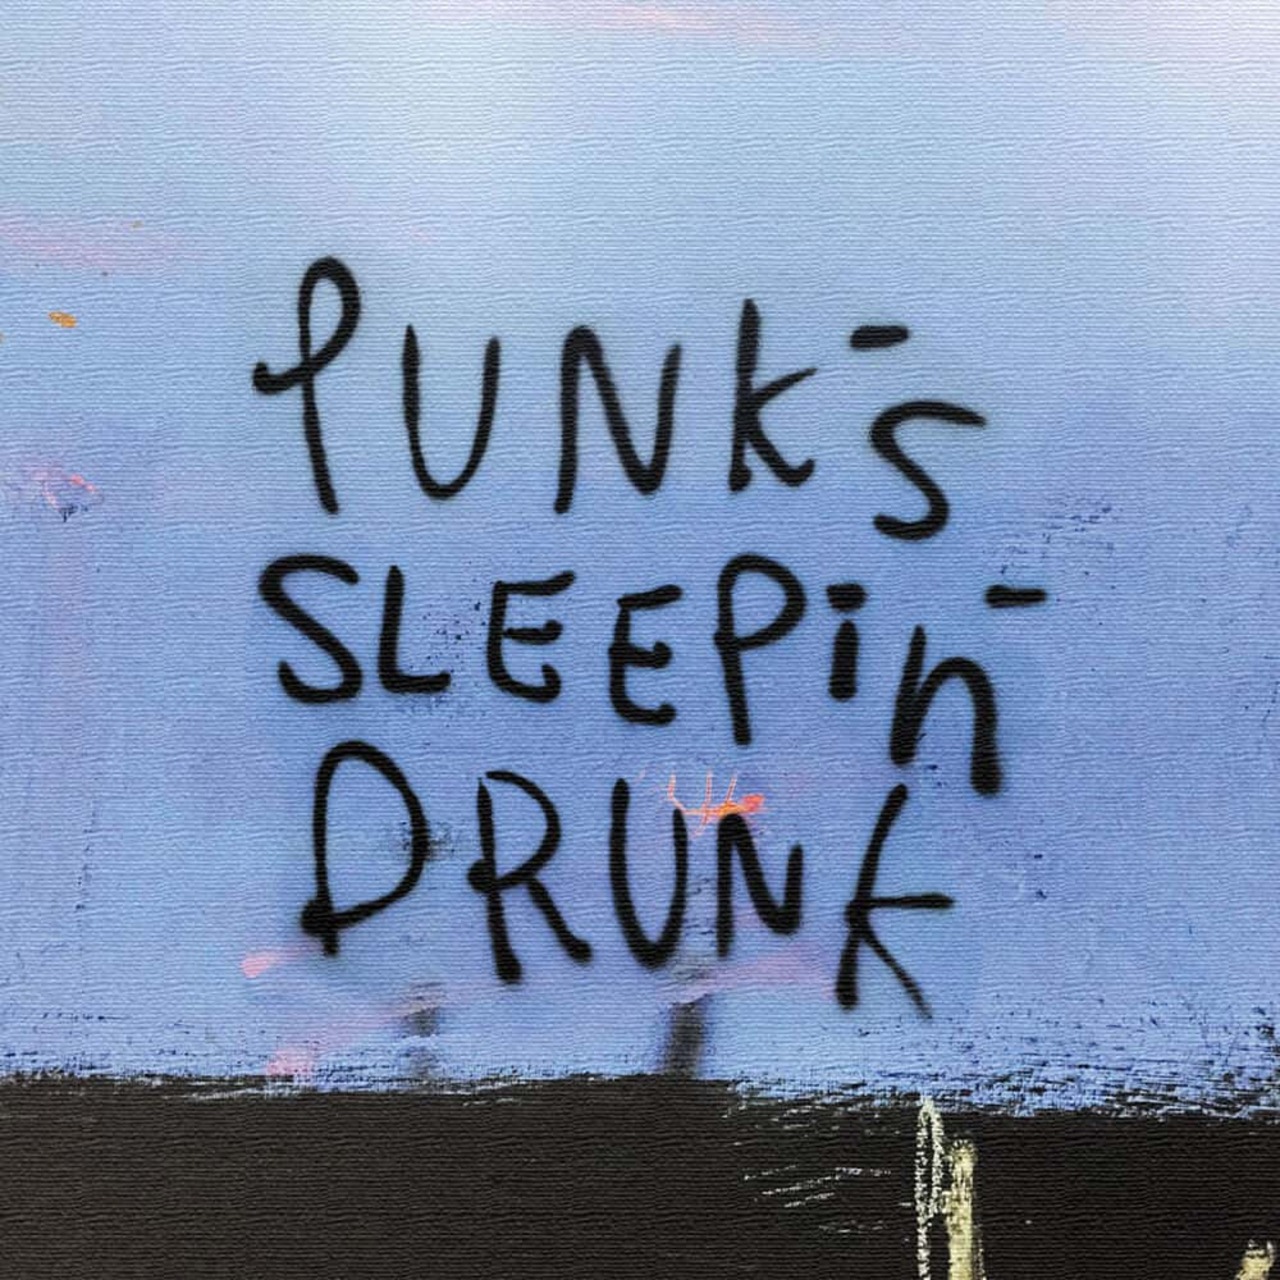 PUNK'S
SLEEPin'
DRUNK